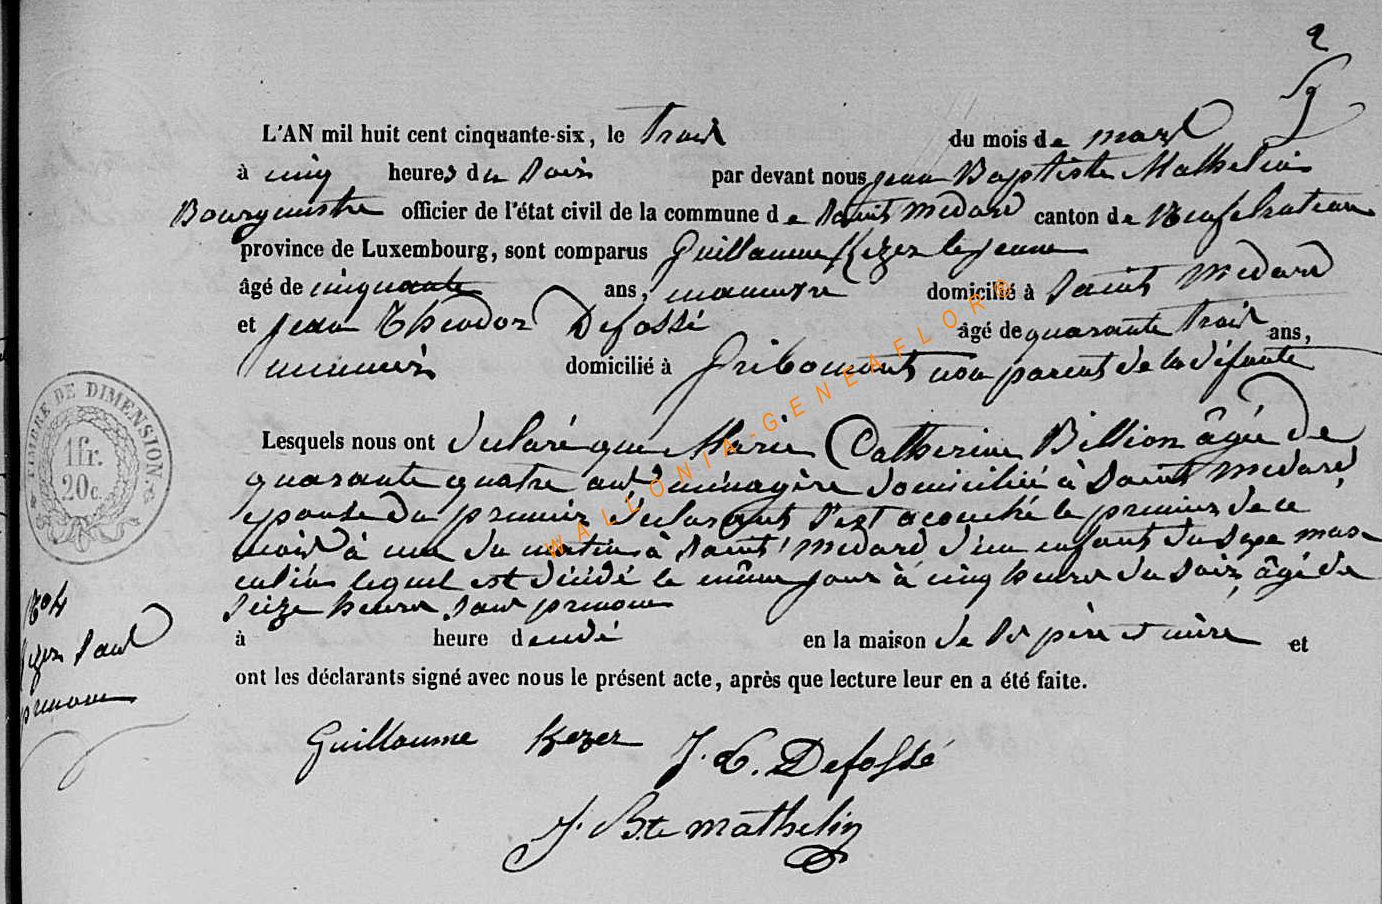 2
L'AN mil huit cent cinquante-six, le trois du mois de mars
à cinq heures du soir par devant nous jean Baptiste Mathelin
Bourgmestre officier de l'état civil de la commune de Saint Medard canton de Neufchateau
province de Luxembourg, sont comparus Guillaume Kezer le jeune
âgé de cinquante ans, manœuvre domicilié à Saint Medard
et jean Theodor Defossé âgé de quarante trois ans,
domicilié à Gribomont non parent de la défunte
Lesquels nous ont declaré que Marie Catherine Billion âgée de
quarante quatre ans ménagère domiciliée à Saint Medard,
epouse du premier déclarant s'est acouché le premier de ce
mois à une du matin à Saint Medard d'un enfant du sexe mas-
culin lequel est décédé le même jour à cinq heures du soir, âgé de
seize heures, sans prenom
à heure decedé en la maison de ses père et mère et
ont les déclarants signé avec nous le présent acte, après que lecture leur en a été faite.
TIMBRE DE DIMENSION.
1 fr.
20 c.
N° 4
Kezer sans
prenom
Guillaume Kezer J. T. Defossé
J. Bte Mathelin
WALLONIA-GENEAFLOR®